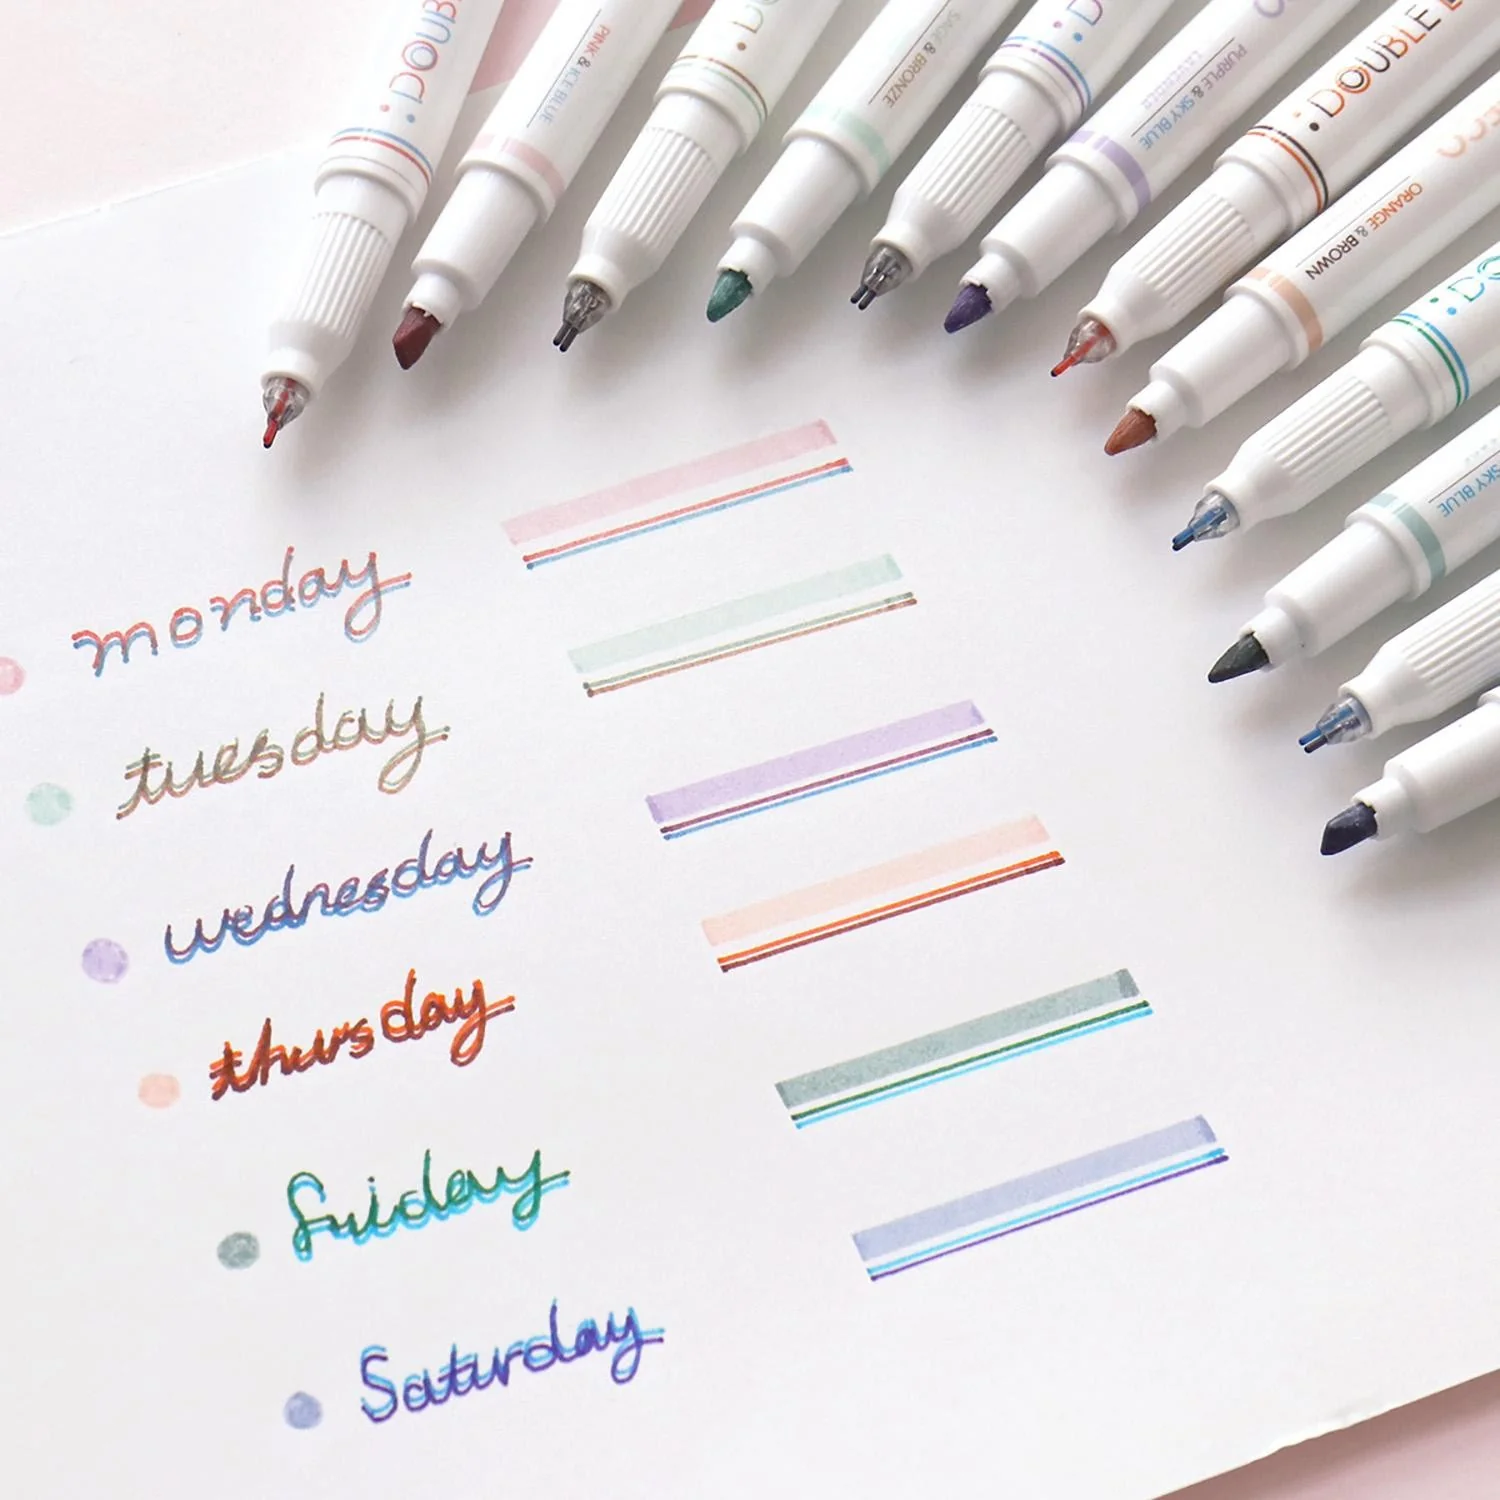 :DOUB
PINK & ICE BLUE
:D
SAGE & BRONZE
:D
PURPLE & SKY BLUE
LAVENDER
:DOUBLE
ORANGE & BROWN
SKY BLUE
monday
tuesday
wednesday
thursday
friday
Saturday